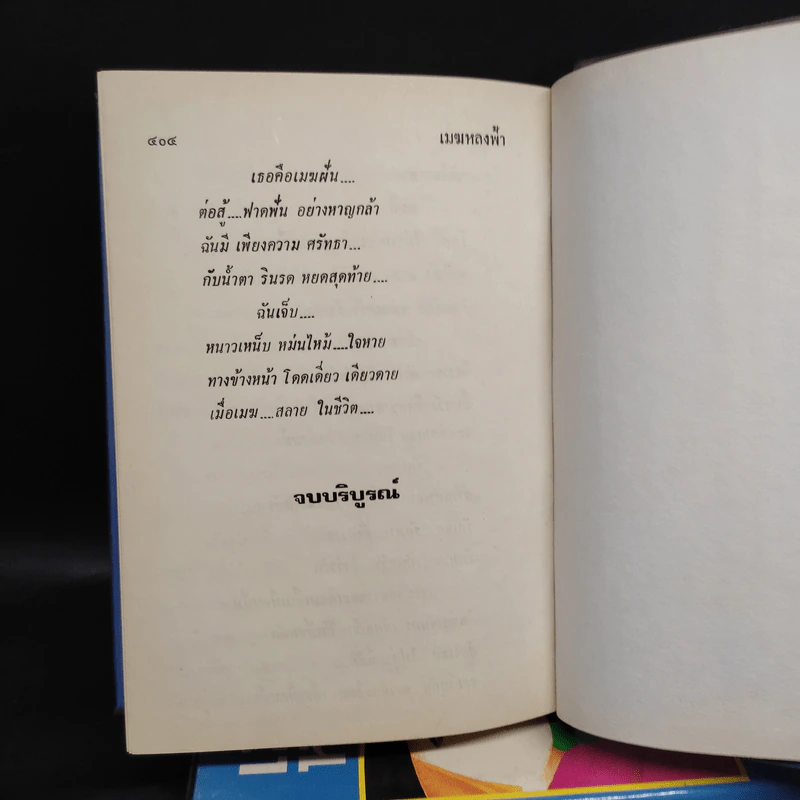 ๔๐๔ เมฆหลงฟ้า
เธอคือเมฆฝั่น....
ต่อสู้....ฟาดฟั่น อย่างหาญกล้า
ฉันมี เพียงความ ศรัทธา...
กับน้ำตา รินรด หยดสุดท้าย....
ฉันเจ็บ....
หนาวเหน็บ หม่นไหม้....ใจหาย
ทางข้างหน้า โดดเดี่ยว เดียวดาย
เมื่อเมฆ....สลาย ในชีวิต....
จบบริบูรณ์